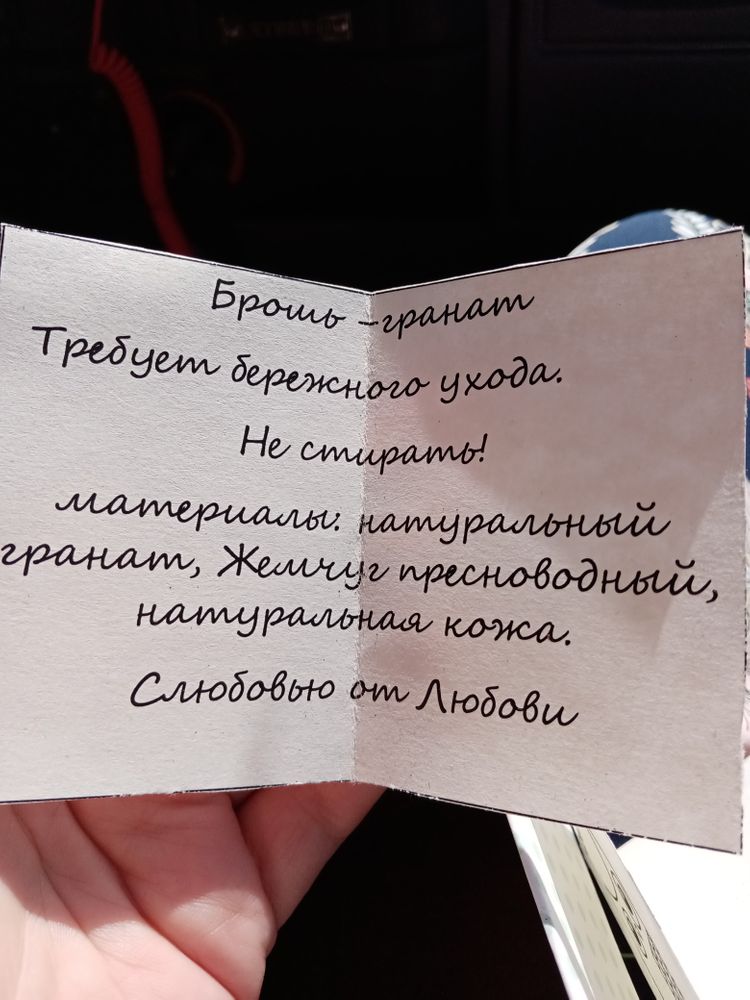 Брошь -гранат
Требует бережного ухода.
Не стирать!
материалы: натуральный
гранат, Жемчуг пресноводный,
натуральная кожа.
Слюбовью от Любови